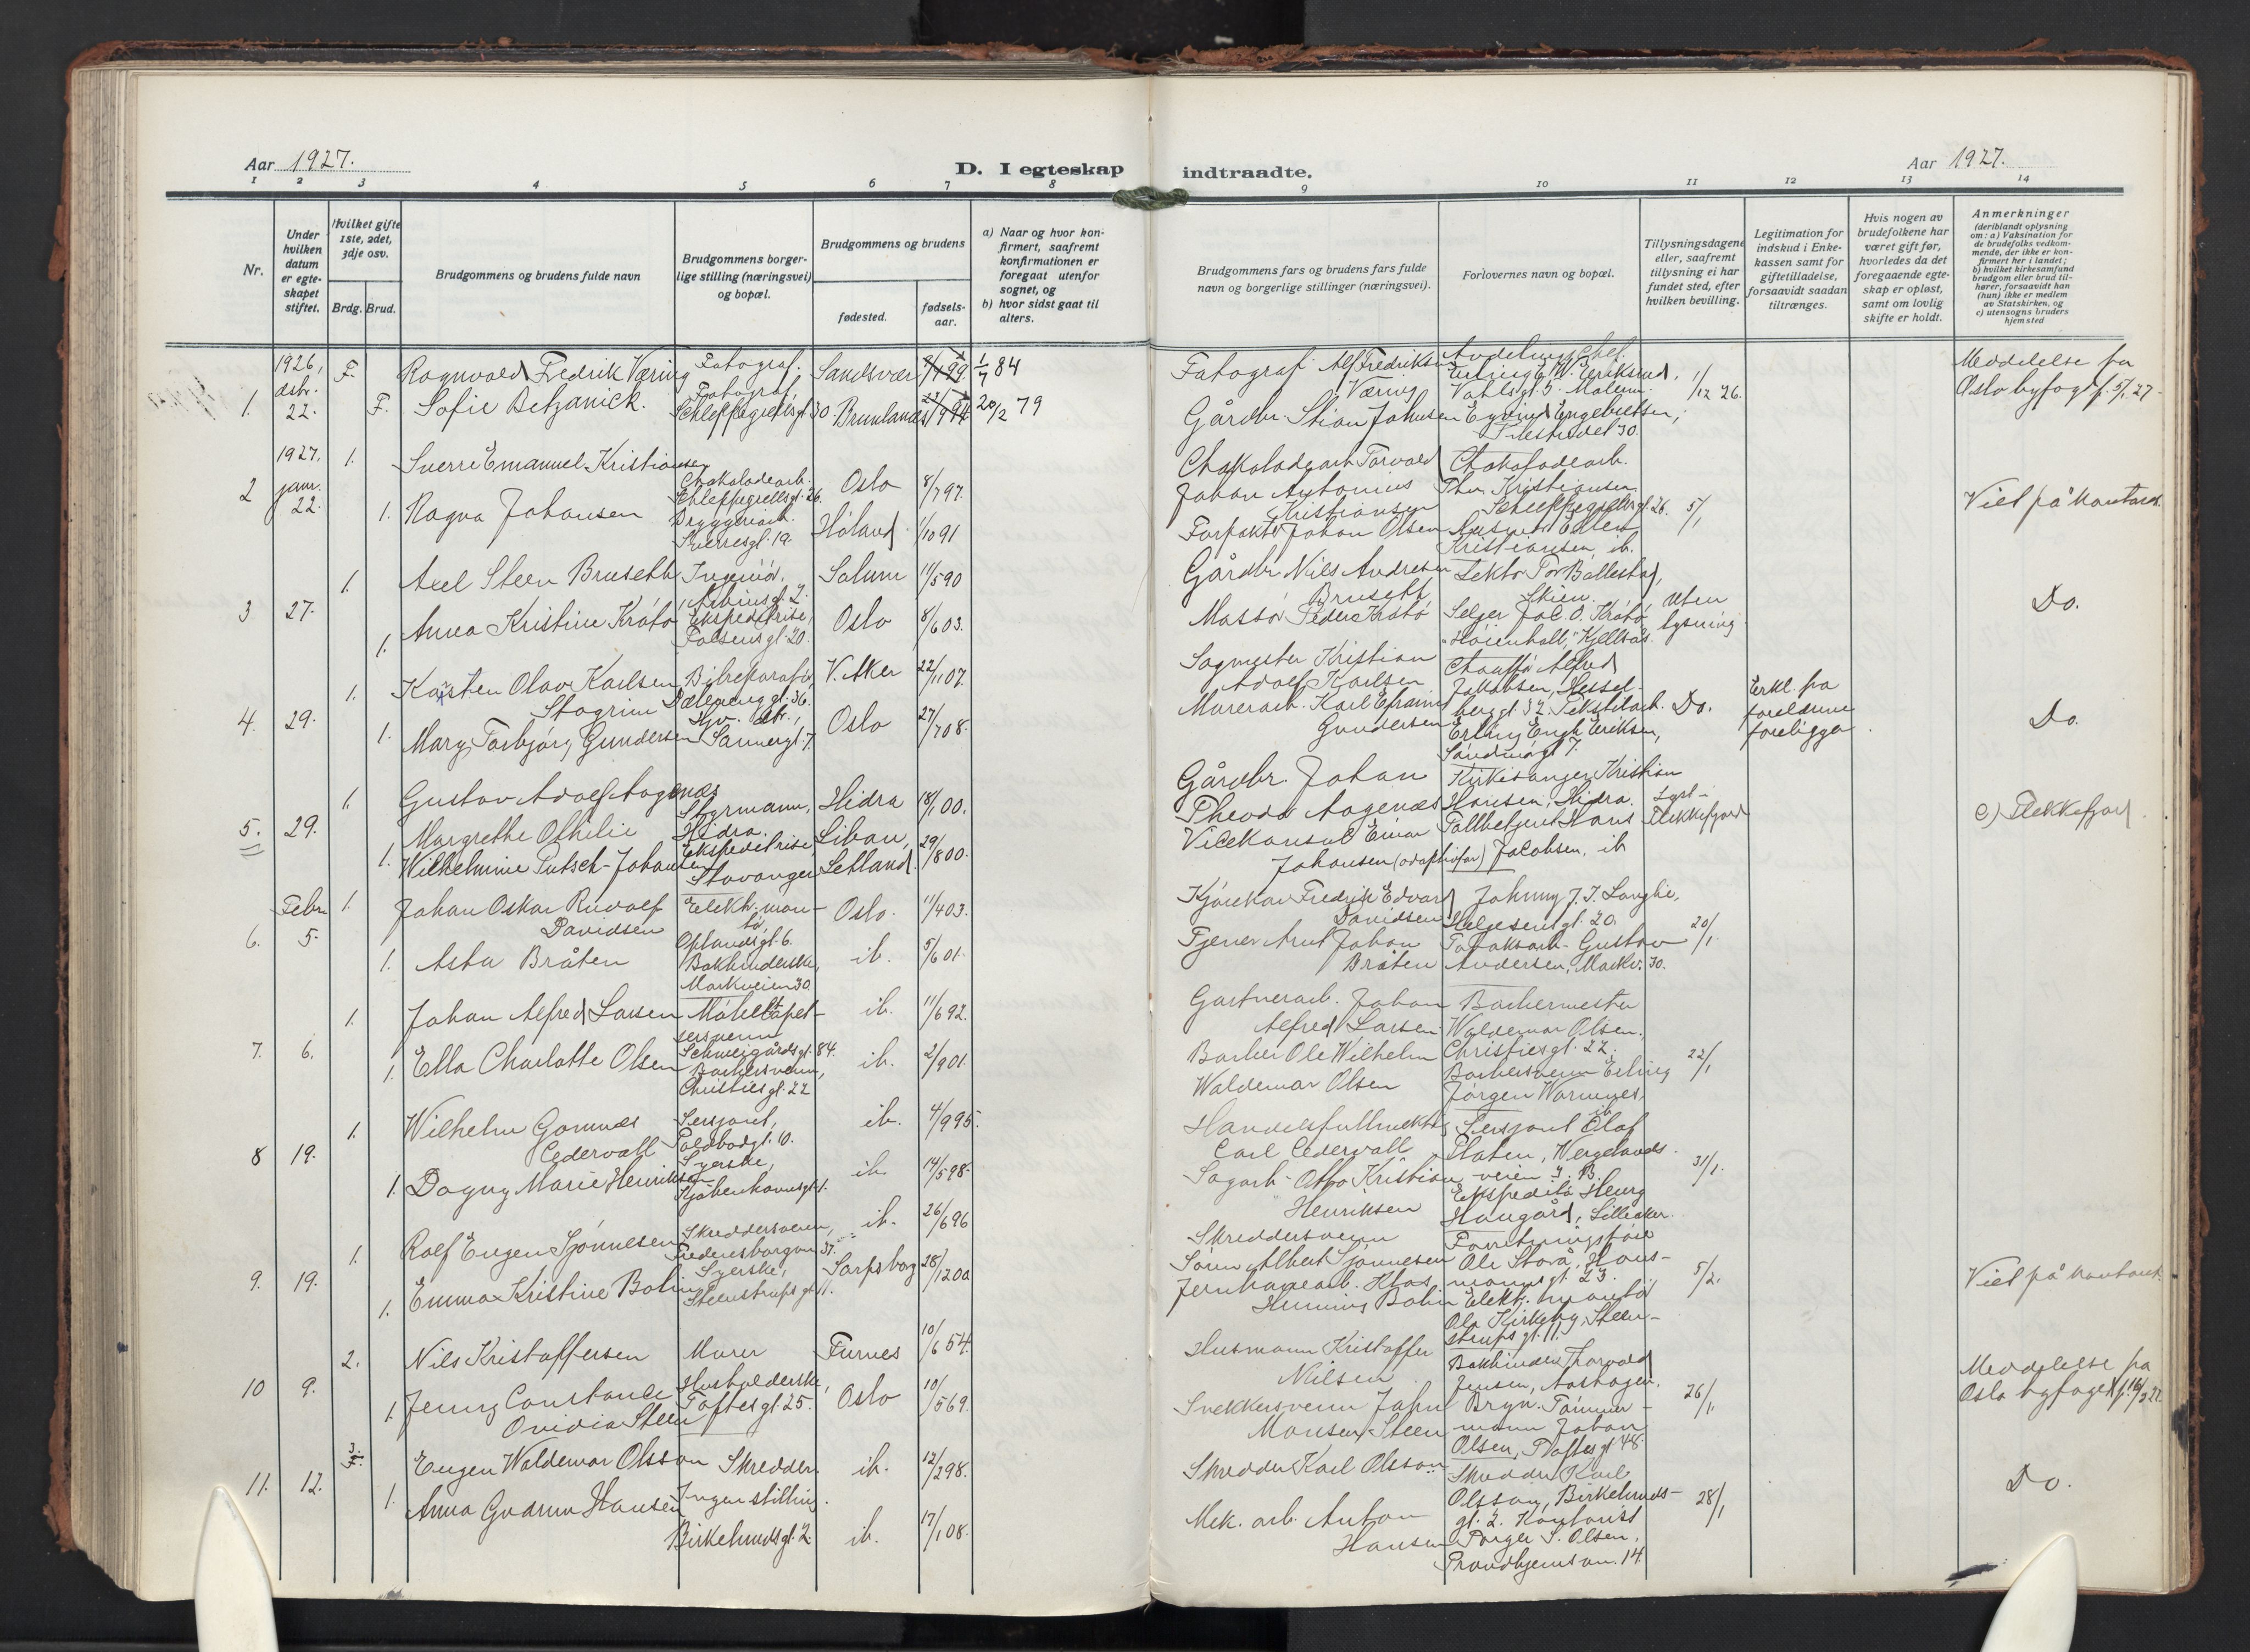 Aar 1927.
D. I egteskap indtraadte.
Aar 1927.
1 2 3 4 5 6 7 8 9 10 11 12 13 14
Nr.
Under hvilken datum er egteskapet stiftet.
Hvilket gifte 1ste, 2det, 3dje osv.
Brdg. Brud.
Brudgommens og brudens fulde navn
Brudgommens borgerlige stilling (næringsvei) og bopæl.
Brudgommens og brudens
fødested.
fødselsaar.
a) Naar og hvor konfirmert, saafremt konfirmationen er foregaat utenfor sognet, og
b) hvor sidst gaat til alters.
Brudgommens fars og brudens fars fulde navn og borgerlige stillinger (næringsvei).
Forlovernes navn og bopæl.
Tillysningsdagene eller, saafremt tillysning ei har fundet sted, efter hvilken bevilling.
Legitimation for indskud i Enkekassen samt for giftetilladelse, forsaavidt saadan tiltrænges.
Hvis nogen av brudefolkene har været gift før, hvorledes da det foregaaende egteskap er opløst, samt om lovlig skifte er holdt.
Anmerkninger (deriblandt oplysning om: a) Vaksination for de brudefolks vedkommende, der ikke er konfirmert her i landet; b) hvilket kirkesamfund brudgom eller brud tilhører, forsaavidt han (hun) ikke er medlem av Statskirken, og c) utensogns bruders hjemsted
1. 1926, dsbr. 22.
F. Ragnvald Fredrik Væring
Fotograf. Sandsvær 1/7 84
F. Sofie Betzanick.
Fotograf Schleppegrellsgt. 30 Brunlanæs 20/2 79
Fotograf Alf Fredriksen Væring
Avdelingschef Erling W. Eriksrud, Vahlsgt. 5.
Gårdbr. Stian Johnsen
Eyvind Engebretsen, 30.
1/12 26.
Meddelelse fra Oslo byfogd 5/1 27.
2 1927. janr. 22.
1. Sverre Emanuel Kristiansen
Chokoladearb. Schleppegrellsgt. 26. Oslo 8/7 97.
1. Ragna Johansen
Bryggeriarb. Sverresgt. 19. Høland 1/10 91
Chokoladearb Torvald Johan Antonius Kristiansen
Chokoladearb. Thv. Kristiansen Schleppegrellsgt. 26.
Forpakter Johan Olsen
Ellen Kristiansen, ib.
5/1
Viet på kontoret.
3 27.
1. Axel Steen Brusett
Ingeniør, gt. 2. Solum 11/5 90
1. Anna Kristine Krøtø
Ekspeditrise, Falsensgt. 20. Oslo 8/6 03.
Gårdbr Nils Andresen Brusett
Lektor Tor Ballestad, Skien.
Massør Peder Krøtø
Selger Jac. O. Krøtø, "Høienhall," Kjellsås.
Uten lysning
Do.
4. 29.
1. Karsten Olav Karlsen Stagrim
Bilreparatør, Dælenenggt. 36. V. Aker 22/11 07.
1. Mary Torbjørg Gundersen
Sannergt. 7. Oslo 27/7 08.
Sagmester Kristian Adolf Karlsen
Chauffør Alfred Jakobsen, Hesselberggt. 32.
Murerarb. Karl Efraim Gundersen
Tekstilarb. Erling Engh Eriksen, 7.
Do.
Erkl. fra foreldrene foreligger
Do.
5. 29.
1. Gustav Adolf Aagenæs
Styrmann, Hidra. Hidra 18/1 00.
1. Margrethe Othilie Wilhelmine Putsch-Johansen
Ekspeditrise, Stavanger Libau, Letland. 29/8 00.
Gårdbr. Johan Theodor Aagenæs
Kirkesanger Kristian Hansen, Hidra.
Vicekonsul Einar Johansen (adoptivfar)
Tollbetjent Hans Jacobsen, ib
Lyst Flekkefjord
c) Flekkefjord.
6. Febr 5.
1. Johan Oskar Rudolf Davidsen
Elektr. montør, Oplandsgt. 6. Oslo. 11/4 03.
1. Asta Bråten
Bokbinderske, Markveien 30. ib. 5/6 01.
Kjørekar Fredrik Edvard Davidsen
Johnny J. I. Langlie, Helgesensgt. 20.
Tjener Arnt Johan Bråten
Tobaksarb. Gustav Andersen, Markv. 30.
20/1.
7. 6.
1. Johan Alfred Larsen
Møbeltapetsersvenn Schweigårdsgt. 84. ib. 11/6 92.
1. Ella Charlotte Olsen
Barbersvenn, Christiesgt. 22 ib. 2/9 01.
Gartnerarb. Johan Alfred Larsen
Barbermester Waldemar Olsen, Christiesgt. 22.
Barber Ole Wilhelm Waldemar Olsen
Barbersvenn Erling Jørgen Warnnes, ib
22/1
8 19.
1. Wilhelm Gomnæs Cedervall
Sersjant, Toldbodgt. 10. ib. 4/9 95.
1. Dagny Marie Henriksen
Syerske, Kjøbenhavnsgt. 1. ib. 14/5 98.
Handelsfullmektig Carl Cedervall
Sersjant Olaf Platen, Wergelandsveien 3. B.
Sagarb. Otto Kristian Henriksen
Ekspeditør Henry Haugård, Lilleaker.
31/1.
9. 19.
1. Rolf Eugen Sjønnesen
Skreddersvenn, Fredensborgvn 37. ib. 26/6 96
1. Emma Kristine Bolin
Syerske, Steenstrupsgt. 11. Sarpsborg 28/12 00
Skreddersvenn Søren Albert Sjønnesen
Forretningsfører Ole Storå, Hausmannsgt. 23.
Jernvarearb. Klas Henning Bolin
Elektr. montør Ole Kirkeby, Steenstrupsgt. 11.
5/2.
Viet på kontoret.
10 9.
2. Nils Kristoffersen
Murer Furnes 10/6 54.
1. Jenny Constance Ovidia Steen
Husholderske, Toftesgt. 25. Oslo 10/5 69.
Husmann Kristoffer Nilsen
Bokbinder Thorvald Jensen, Bryn.
Snekkersvenn John Monsen Steen
Tømmermann Johan Olsen, Toftesgt. 48.
26/1
Meddelelse fra Oslo byfogd
11. 12.
Eugen Waldemar Olsson
Skredder. ib. 12/2 98.
1. Anna Gudrun Hansen
Ingen stilling. Birkelundsgt. 2. ib. 17/1 08.
Skredder Karl Olsson
Skredder Karl Olsson, Birkelundsgt. 2.
Mek. arb. Anton Hansen
Kontorist Torger S. Olsen, Trondhjemsvn. 14.
28/1
Do.